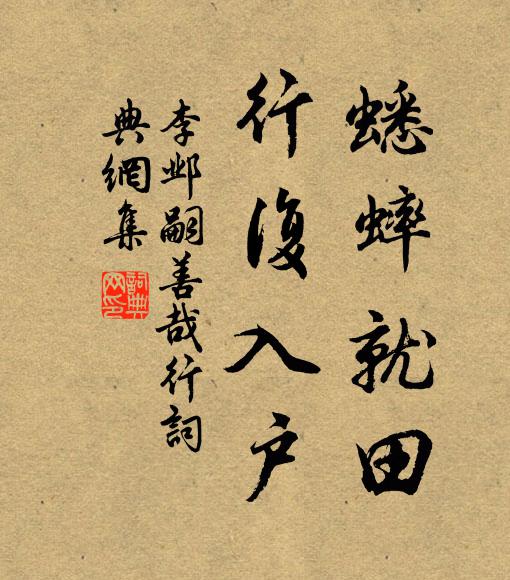 蟋蟀就田
行復入户
李邺嗣善哉行詞
典網集
詞典網印